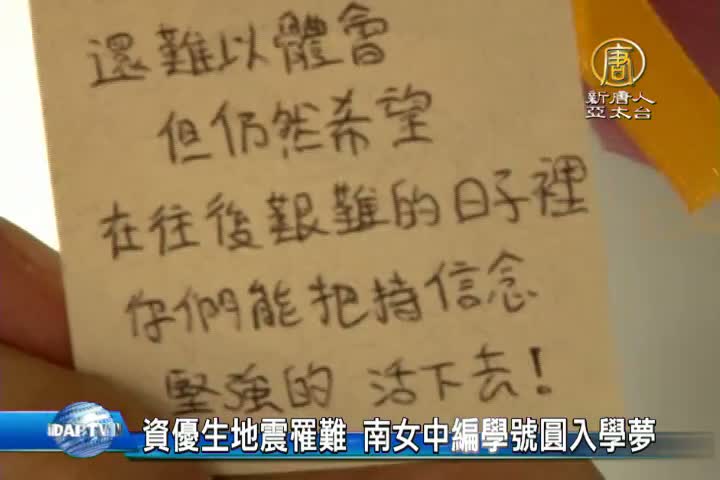 還難以體會
但仍然希望
在往後艱難的日子裡
你們能把持信念
堅強的 活下去!
唐
新唐人
亞太台
資優生地震罹難 南女中編學號圓入學夢